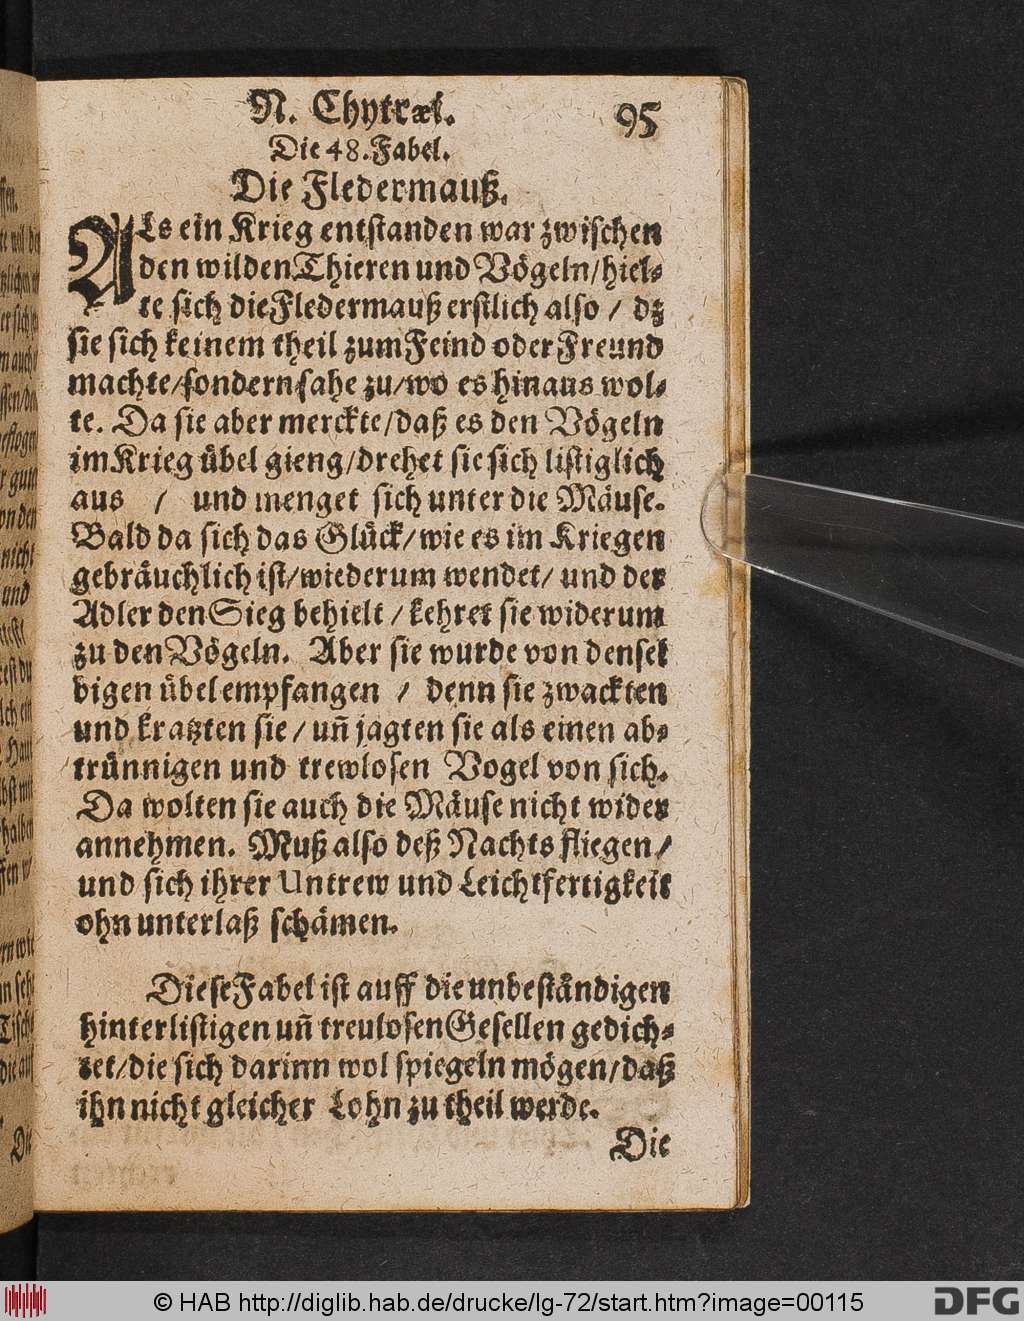 N. Chytræi. 95
Die 48. Fabel.
Die Fledermauß.
ALs ein Krieg entstanden war zwischen
den wilden Thieren und Vögeln/hiel-
te sich die Fledermauß erstlich also / dz
sie sich keinem theil zum Feind oder Freund
machte/sondern sahe zu/wo es hinaus wol-
te. Da sie aber merckte/daß es den Vögeln
im Krieg übel gieng/drehet sie sich listiglich
aus / und menget sich unter die Mäuse.
Bald da sich das Glück/wie es im Kriegen
gebräuchlich ist/wiederum wendet/ und der
Adler den Sieg behielt / kehret sie widerum
zu den Vögeln. Aber sie wurde von densel
bigen übel empfangen / denn sie zwackten
und kratzten sie / uñ jagten sie als einen ab-
trünnigen und trewlosen Vogel von sich.
Da wolten sie auch die Mäuse nicht wider
annehmen. Muß also deß Nachts fliegen/
und sich ihrer Untrew und Leichtfertigkeit
ohn unterlaß schämen.
Diese Fabel ist auff die unbeständigen
hinterlistigen uñ treulosen Gesellen gedich-
tet/die sich darinn wol spiegeln mögen/daß
ihn nicht gleicher Lohn zu theil werde.
Die
© HAB http://diglib.hab.de/drucke/lg-72/start.htm?image=00115
DFG